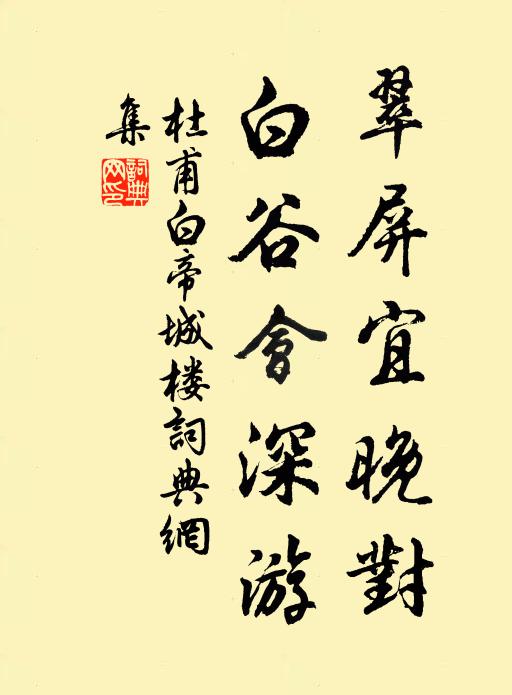 翠屏宜晚對
白谷會深游
杜甫白帝城楼詞典網
集
詞典網印